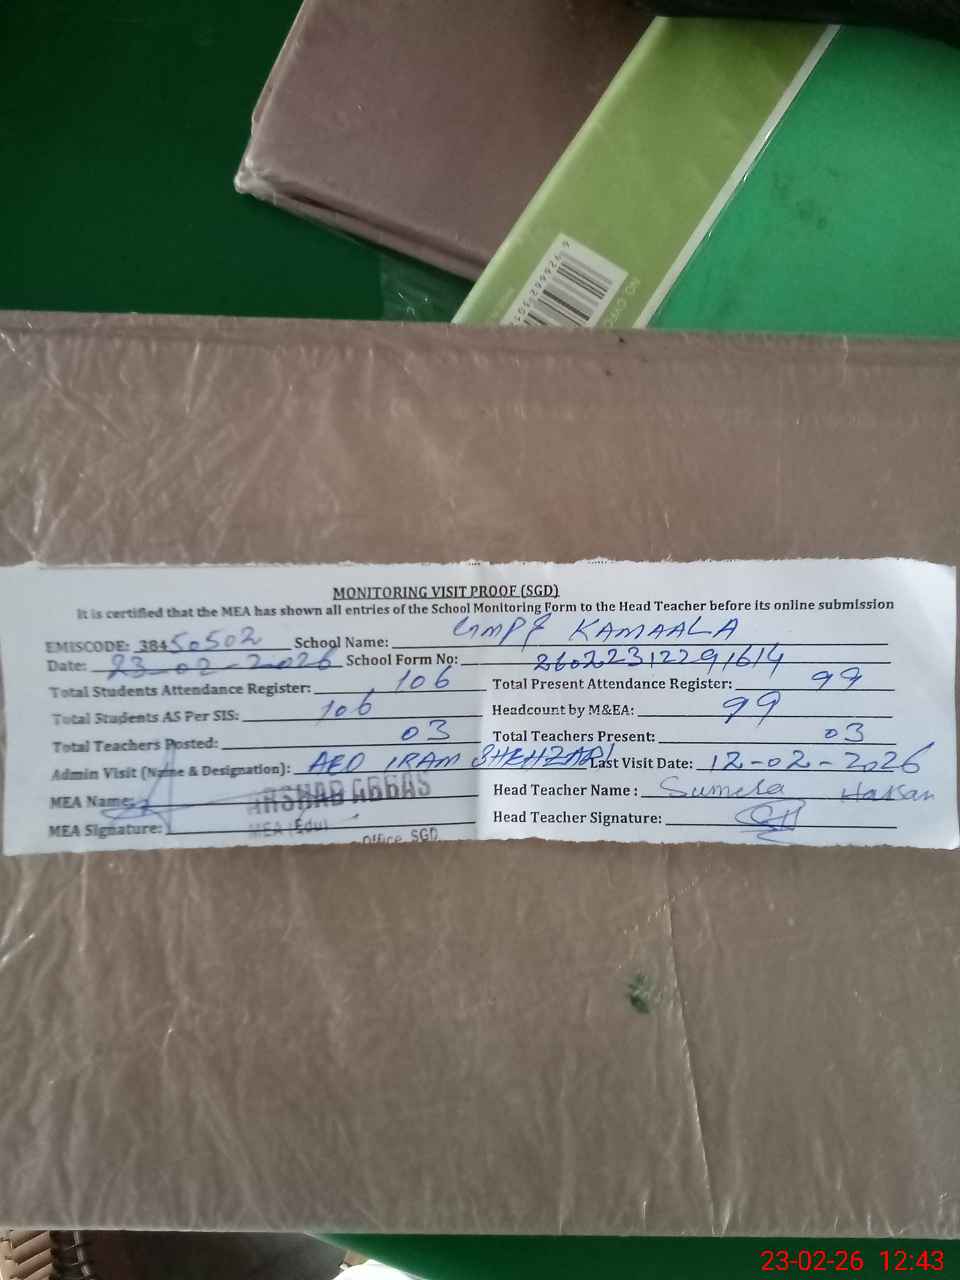 MONITORING VISIT PROOF (SGD)
It is certified that the MEA has shown all entries of the School Monitoring Form to the Head Teacher before its online submission
EMISCODE: 38450502 School Name: GMPS KAMAALA
Date: 23-02-2026 School Form No: 26022312291614
Total Students Attendance Register: 106 Total Present Attendance Register: 99
Total Students AS Per SIS: 106 Headcount by M&EA: 99
Total Teachers Posted: 03 Total Teachers Present: 03
Admin Visit (Name & Designation): AEO IRAM SHEHZADI Last Visit Date: 12-02-2026
MEA Name: ARSHAD ABBAS Head Teacher Name: Sumera Hassan
MEA (Edu)
MEA Signature: Head Teacher Signature:
Office SGD
23-02-26 12:43